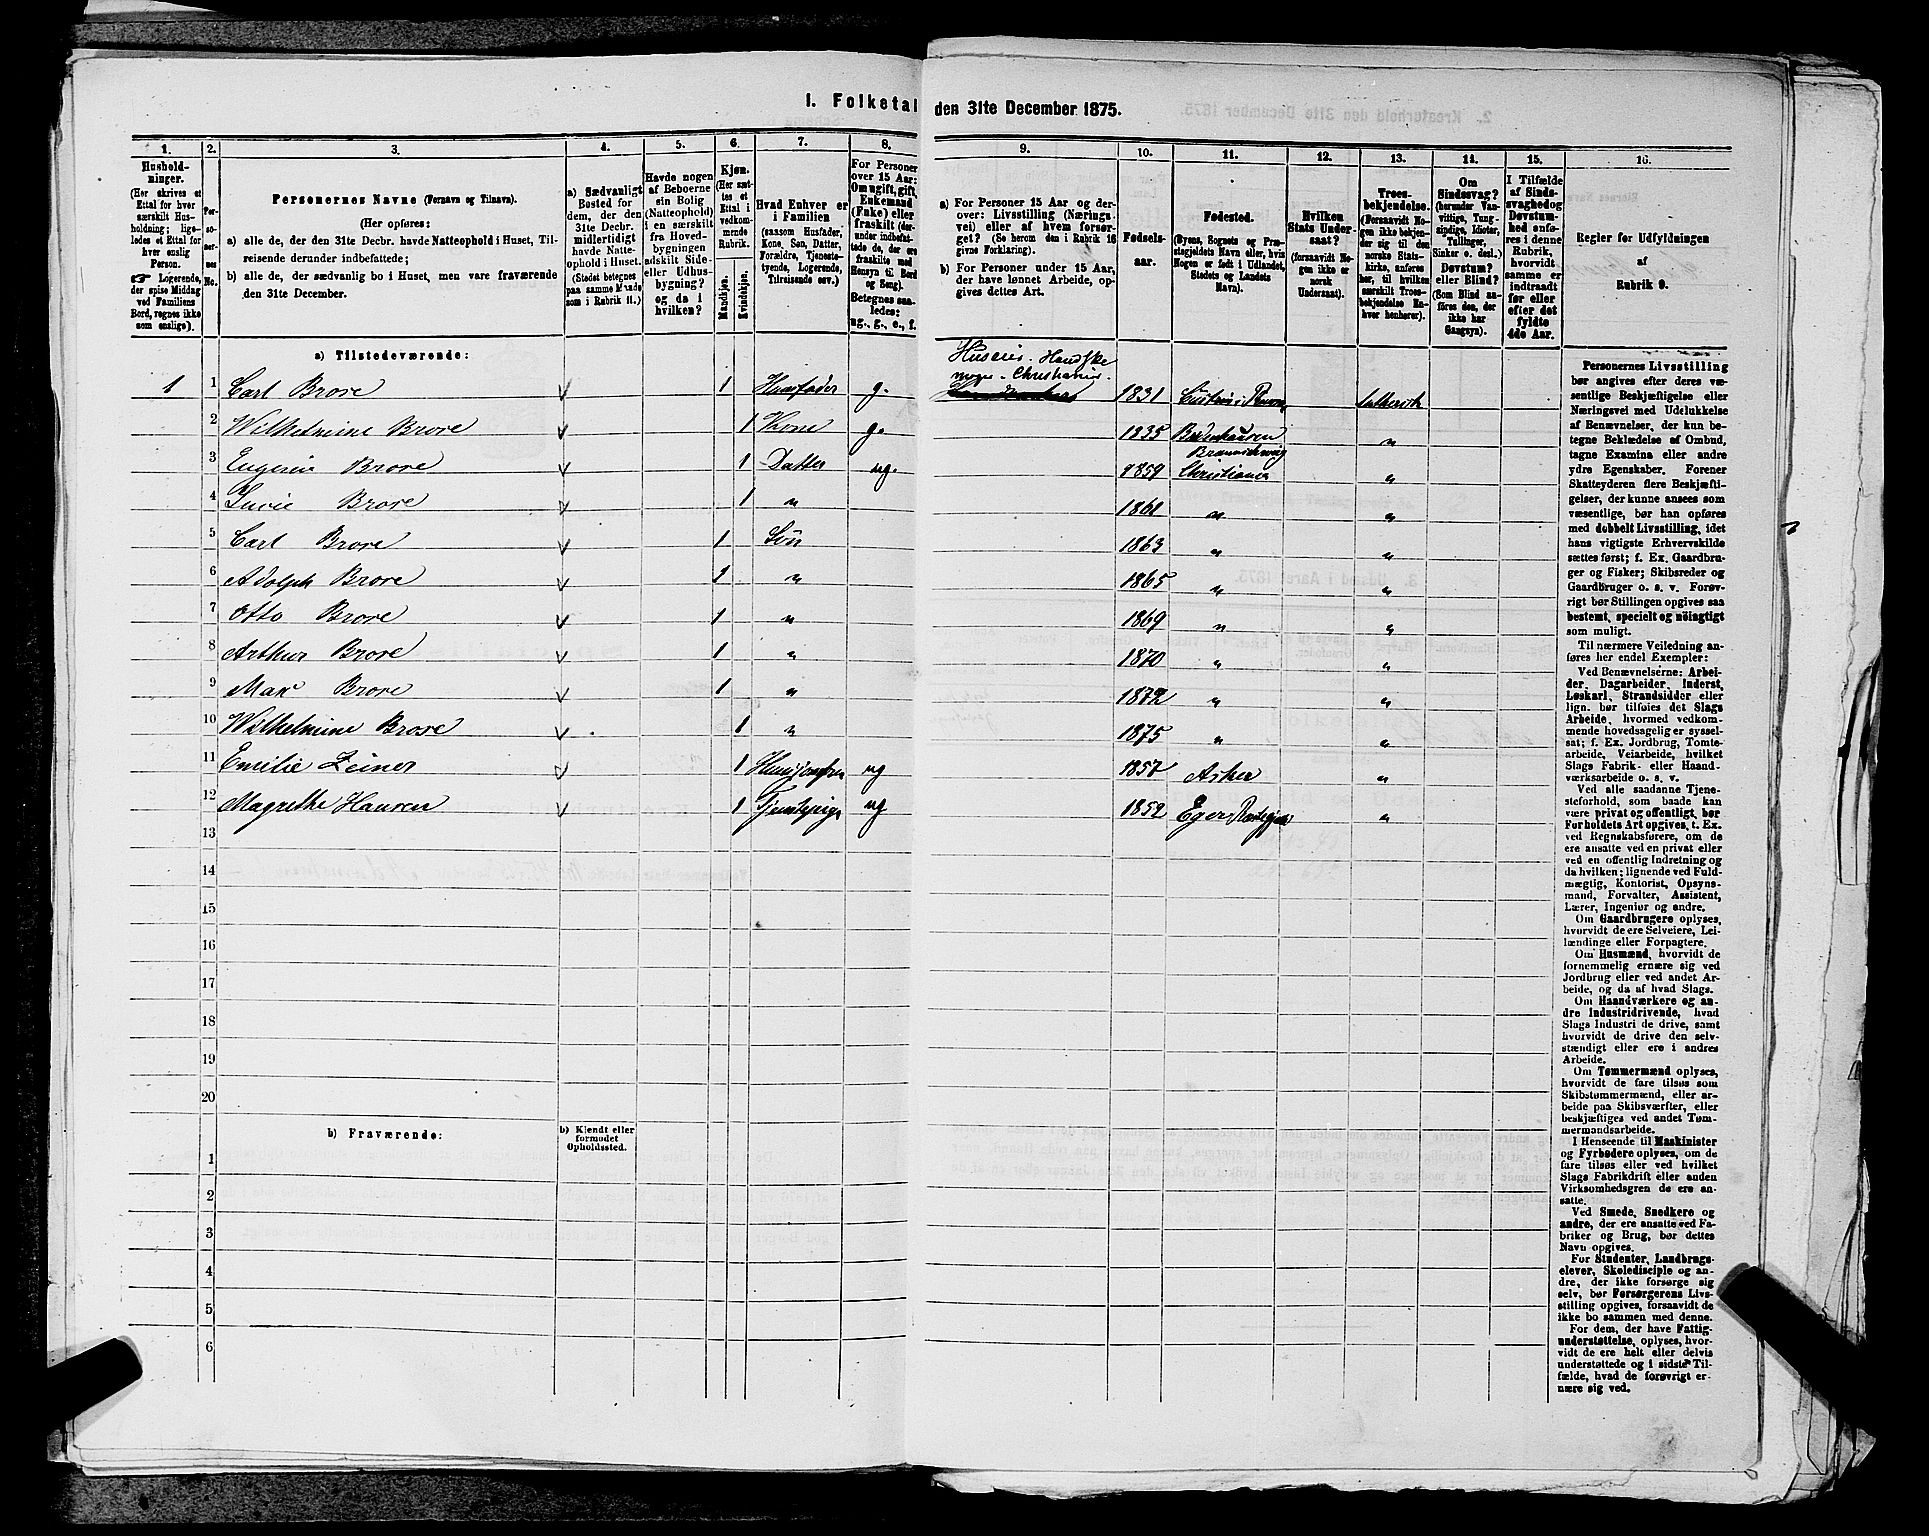 1. Folketal den 31te December 1875.
1. 2. 3. 4. 5. 6. 7. 8. 9. 10. 11. 12. 13. 14. 15. 16.
Hushold-
ninger.
(Her skrives et
Ettal for hver
særskilt Hus-
holdning; lige-
ledes et Ettal for
hver enslig
Person.
☞ Logerende,
der spise Middag
ved Familiens
Bord, regnes ikke
som enslige).
Per-
so-
ner-
nes
No.
Personernes Navne (Fornavn og Tilnavn).
(Her opføres:
a) alle de, der den 31te Decbr. havde Natteophold i Huset, Til-
reisende derunder indbefattede;
b) alle de, der sædvanlig bo i Huset, men vare fraværende
den 31te December.
a) Sædvanligt
Bosted for
dem, der den
31te Decbr.
midlertidigt
havde Natte-
ophold i Huset.
(Stedet betegnes
paa samme Maade
som i Rubrik 11.)
Havde nogen
af Beboerne
sin Bolig
(Natteophold)
i en særskilt
fra Hoved-
bygningen
adskilt Side-
eller Udhus-
bygning?
og da i
hvilken?
Kjøn.
(Her sæt-
tes et
Ettal i
vedkom-
mende
Rubrik.
Mandkjøn.
Kvindekjøn.
Hvad Enhver er
i Familien
(saasom Husfader,
Kone, Søn, Datter,
Forældre, Tjeneste-
tyende, Logerende,
Tilreisende osv.)
For Personer
over 15 Aar:
Om ugift, gift,
Enkemand
(Enke) eller
fraskilt (der-
under indbefat-
tede de, der ere
fraskilte med
Hensyn til Bord
og Seng).
Betegnes saa-
ledes:
ug., g., e., f.
a) For Personer 15 Aar og der-
over: Livsstilling (Nærings-
vei) eller af hvem forsør-
get? (Se herom den i Rubrik 16
givne Forklaring).
b) For Personer under 15 Aar,
der have lønnet Arbeide, op-
gives dettes Art.
Fødsels-
aar.
Fødested.
(Byens, Sognets og Præ-
stegjeldets Navn eller, hvis
Nogen er født i Udlandet,
Stedets og Landets
Navn).
Hvilken
Stats Under-
saat?
(forsaavidt No-
gen ikke er
norsk
Undersaat).
Troes-
bekjendelse.
(Forsaavidt No-
gen ikke bekjen-
der sig til den
norske Stats-
kirke, anføres
her, til hvilken
særskilt Troes-
bekjendelse En-
hver henhører).
Om
Sindssvag?
(herunder Van-
vittige, Tung-
sindige, Idioter,
Tullinger,
Sinker o. desl.)
Døvstum?
eller Blind?
(Som Blind an-
føres den, der
ikke har
Gangsyn).
I Tilfælde
af Sinds-
svaghed og
Døvstum-
hed anfø-
res i denne
Rubrik,
hvorvidt
samme er
indtraadt
før eller
efter det
fyldte
4de Aar.
Regler for Udfyldningen
af
Rubrik 9.
a) Tilstedeværende:
Huseier. Handske
mager. Christiania.
1 1 Carl Brose 1 Huusfader g. 1831 luthersk
2 Wilhelmine Brose 1 Kone g. 1835 Badenhausen Braunschweig "
3 Eugenie Brose 1 Datter ug. 1859 Christiania "
4 Lucie Brose 1 " 1861 " "
5 Carl Brose 1 Søn 1863 " "
6 Adolph Brose 1 " 1865 " "
7 Otto Brose 1 " 1869 " "
8 Arthur Brose 1 " 1870 " "
9 Max Brose 1 " 1872 " "
10 Wilhelmine Brose 1 " 1875 " "
11 Emilie Zeiner 1 Huusjomfru ug 1857 Asker "
12 Magrethe Hansen 1 Tjenestepige ug 1852 Eger "
13
14
15
16
17
18
19
20
b) Fraværende:
b) Kjendt eller
formodet
Opholdssted.
1
2
3
4
5
6
Personernes Livsstilling
bør angives efter deres væ-
sentlige Beskjæftigelse eller
Næringsvei med Udelukkelse
af Benævnelser, der kun be-
tegne Beklædelse af Ombud,
tagne Examina eller andre
ydre Egenskaber. Forener
Skatteyderen flere Beskjæfti-
gelser, der kunne ansees som
væsentlige, bør han opføres
med dobbelt Livsstilling, idet
hans vigtigste Erhvervskilde
sættes først; f. Ex. Gaardbru-
ger og Fisker; Skibsreder og
Gaardbruger o. s. v. Forøv-
rigt bør Stillingen opgives saa
bestemt, specielt og nöiagtigt
som muligt.
Til nærmere Veiledning an-
føres her endel Exempler:
Ved Benævnelserne: Arbei-
der, Dagarbeider, Inderst,
Løskarl, Strandsidder eller
lign. bør tilføies det Slags
Arbeide, hvormed vedkom-
mende hovedsagelig er syssel-
sat; f. Ex. Jordbrug, Tomte-
arbeide, Veiarbeide, hvilket
Slags Fabrik- eller Haand-
værksarbeide o. s. v.
Ved alle saadanne Tjene-
steforhold, som baade kan
være privat og offentligt, bør
Forholdets Art opgives, f. Ex.
ved Regnskabsførere, om de
ere ansatte ved en privat eller
ved en offentlig Indretning og
da hvilken; lignende ved Fuld-
mægtig, Kontorist, Opsyns-
mand, Forvalter, Assistent,
Lærer, Ingeniør og andre.
Om Gaardbrugere oplyses,
hvorvidt de ere Selveiere, Lei-
lændinge eller Forpagtere.
Om Husmænd, hvorvidt de
fornemmelig ernære sig ved
Jordbrug eller ved andet Ar-
beide, og da af hvad Slags.
Om Haandværkere og an-
dre Industridrivende, hvad
Slags Industri de drive, samt
hvorvidt de drive den selv-
stændigt eller ere i andres
Arbeide.
Om Tømmermænd oplyses,
hvorvidt de fare tilsøs som
Skibstømmermænd, eller ar-
beide paa Skibsværfter, eller
beskjæftiges ved andet Tøm-
mermandsarbeide.
I Henseende til Maskinister
og Fyrbødere oplyses, om de
fare tilsøs eller ved hvilket
Slags Fabrikdrift eller anden
Virksomhedsgren de ere an-
satte.
Ved Smede, Snedkere og
andre, der ere ansatte ved Fa-
briker og Brug, bør dettes
Navn opgives.
For Studenter, Landbrugs-
elever, Skoledisciple og an-
dre, der ikke forsørge sig
selv, bør Forsørgerens Livs-
stilling opgives, forsaavidt de
ikke bo sammen med denne.
For dem, der have Fattig-
understøttelse, oplyses, hvor-
vidt de ere helt eller delvis
understøttede og i sidste Til-
fælde, hvad de forøvrigt er-
nære sig ved.